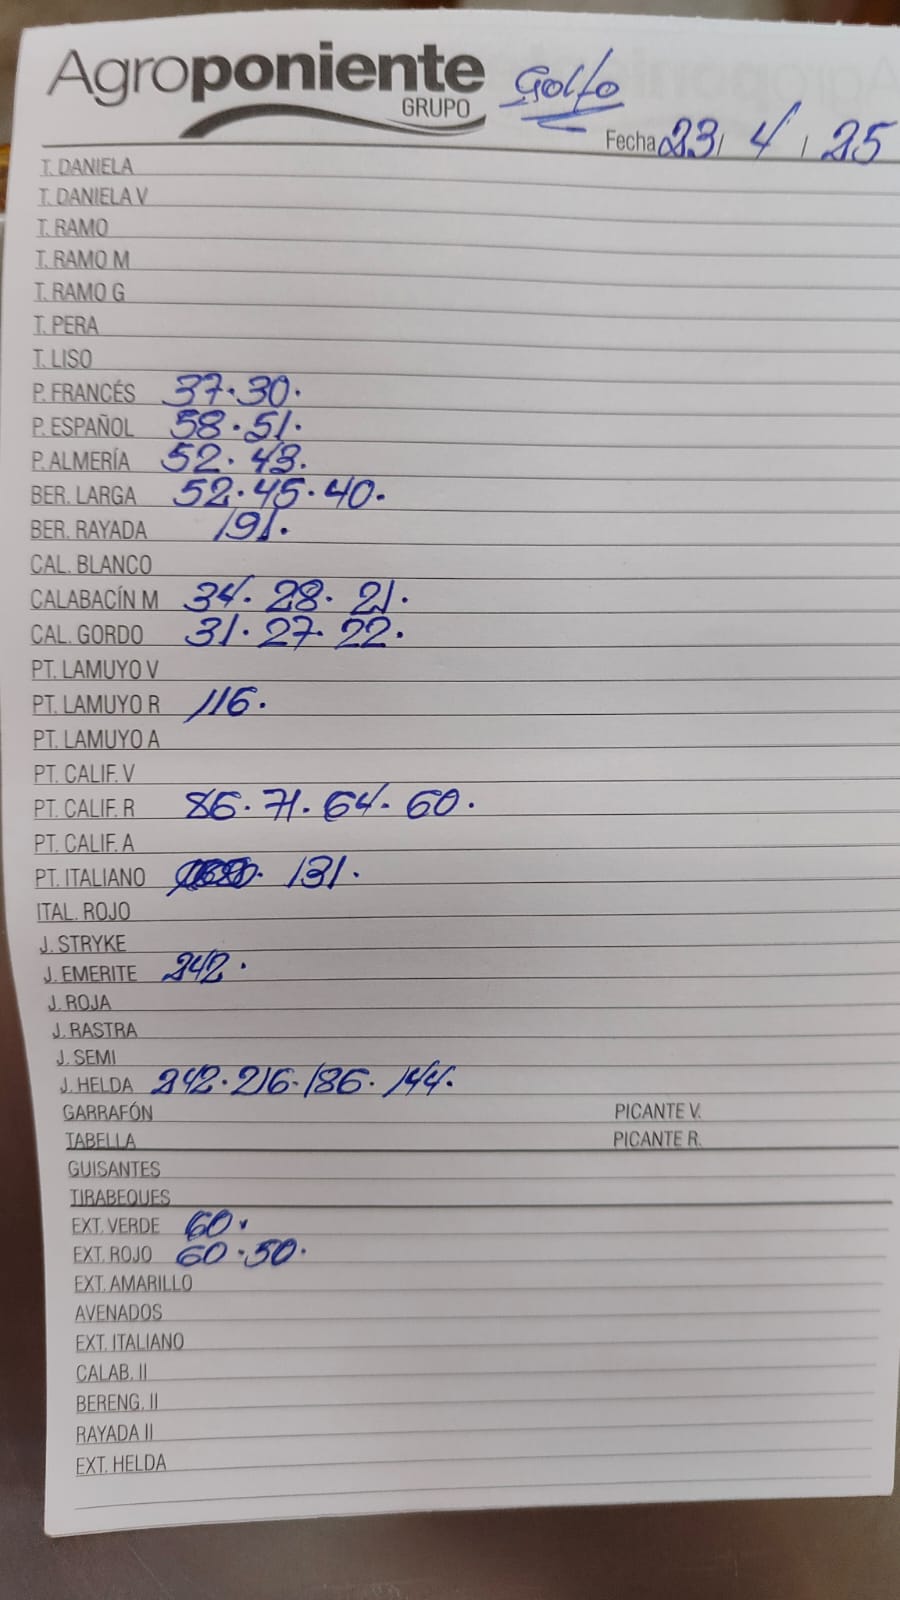 Agroponiente
GRUPO
Golfo
Fecha 23 / 4 / 25
T. DANIELA
T. DANIELA V
T. RAMO
T. RAMO M
T. RAMO G
T. PERA
T. LISO
P. FRANCÉS 37. 30.
P. ESPAÑOL 58. 51.
P. ALMERÍA 52. 43.
BER. LARGA 52. 45. 40.
BER. RAYADA 191.
CAL. BLANCO
CALABACÍN M 34. 28. 21.
CAL. GORDO 31. 27. 22.
PT. LAMUYO V
PT. LAMUYO R 116.
PT. LAMUYO A
PT. CALIF. V
PT. CALIF. R 86. 71. 64. 60.
PT. CALIF. A
PT. ITALIANO 131.
ITAL. ROJO
J. STRYKE
J. EMERITE 242.
J. ROJA
J. RASTRA
J. SEMI
J. HELDA 242. 216. 186. 144.
GARRAFÓN PICANTE V.
TABELLA PICANTE R.
GUISANTES
TIRABEQUES
EXT. VERDE 60.
EXT. ROJO 60. 50.
EXT. AMARILLO
AVENADOS
EXT. ITALIANO
CALAB. II
BERENG. II
RAYADA II
EXT. HELDA